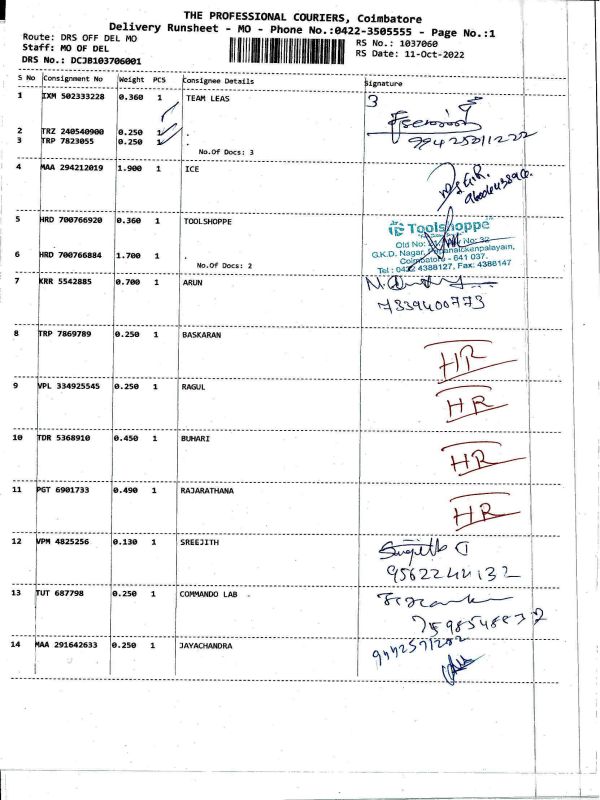 THE PROFESSIONAL COURIERS, Coimbatore
Delivery Runsheet - MO - Phone No.:0422-3505555 - Page No.:1
Route: DRS OFF DEL MO
Staff: MO OF DEL
DRS No.: DCJB103706001
RS No.: 1037060
RS Date: 11-Oct-2022
S No Consignment No Weight PCS Consignee Details Signature
1 IXM 502333228 0.360 1 TEAM LEAS 3
2 TRZ 240540900 0.250 1 .
3 TRP 7823055 0.250 1 .
No.Of Docs: 3
4 MAA 294212019 1.900 1 ICE
5 HRD 700766920 0.360 1 TOOLSHOPPE
Toolshoppe
Old No: No: 32
6 HRD 700766884 1.700 1 .
G.K.D. Nagar, Pappanaickenpalayam,
Coimbatore - 641 037.
No.Of Docs: 2
Tel : 0422 4388127, Fax: 4388147
7 KRR 5542885 0.700 1 ARUN
7339400773
8 TRP 7869789 0.250 1 BASKARAN
HR
9 VPL 334925545 0.250 1 RAGUL
HR
10 TDR 5368910 0.450 1 BUHARI
HR
11 PGT 6901733 0.490 1 RAJARATHANA
HR
12 VPM 4825256 0.130 1 SREEJITH
13 TUT 687798 0.250 1 COMMANDO LAB
14 MAA 291642633 0.250 1 JAYACHANDRA